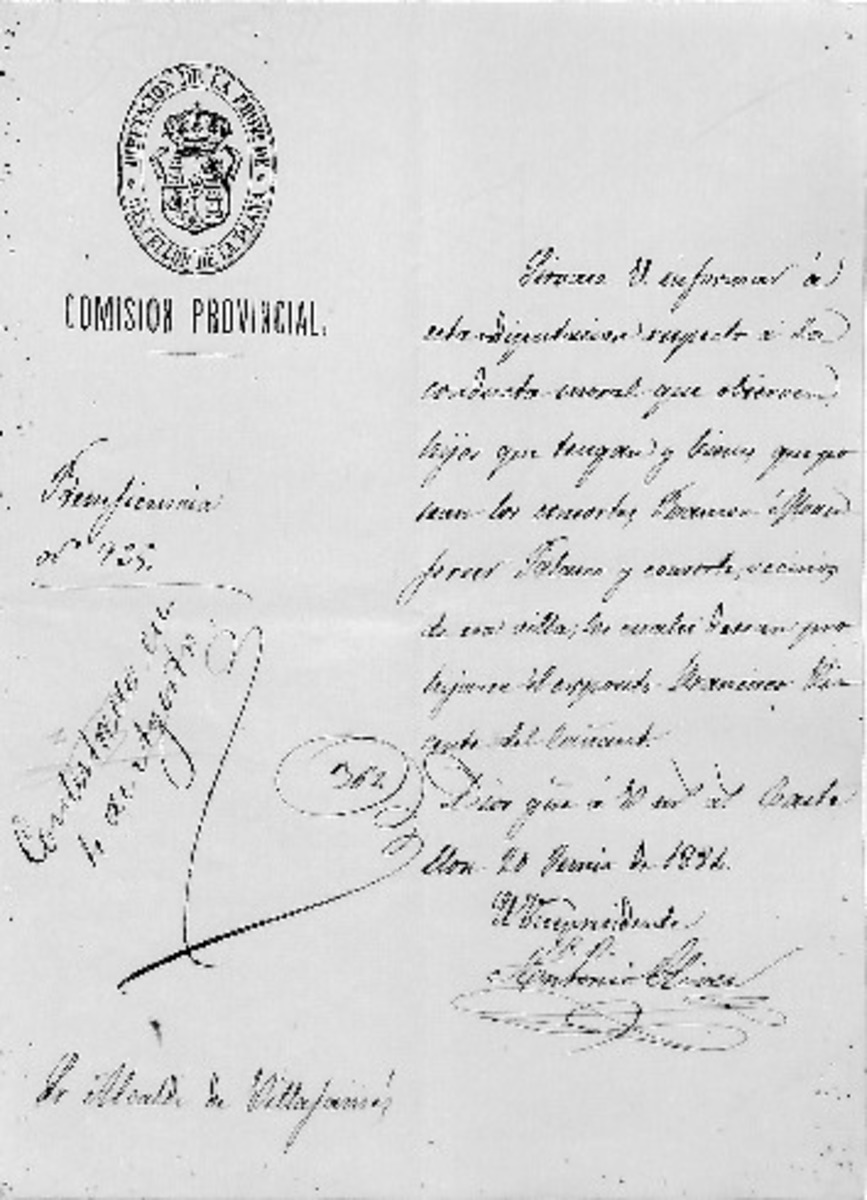 DIPUTACION DE LA PROV. DE
CASTELLON DE LA PLANA
COMISION PROVINCIAL.
Beneficencia
nº 925.
Contestado en
de Agosto
362
Sirvase V. informar á
esta Diputacion respecto á la
conducta moral que observen,
hijos que tengan y bienes que po
sean los consortes Ramon
Ferrer y consorte, vecinos
de esa villa, los cuales desean pro
hijarse el exposito Francisco Vi
cente del
Dios gue á V m a Caste
llon 20 Junio de 1882.
El Vicepresidente
Antonio
Sr Alcalde de Villafamés